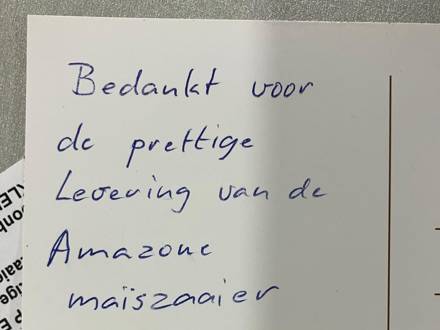 Bedankt voor
de prettige
Levering van de
Amazone
maïszaaier